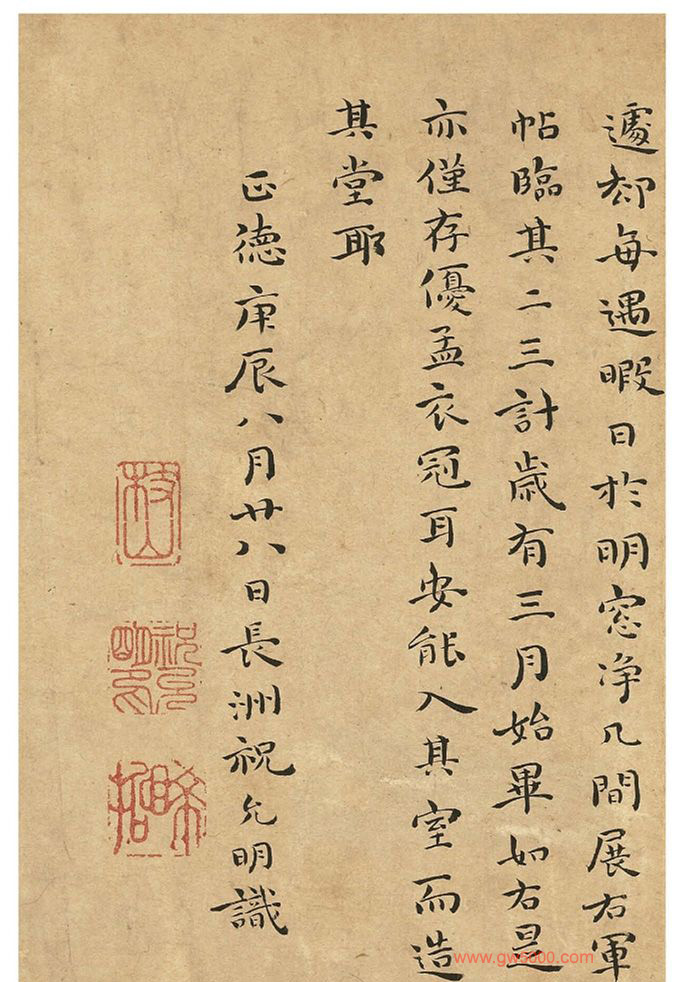 遽却每遇暇日於明窓净几間展右軍
帖臨其二三計歲有三月始畢如右是
亦僅存優孟衣冠耳安能入其室而造
其堂耶
正德庚辰八月廿八日長洲祝允明識
枝山
祝允明印
希哲
www.gws000.com